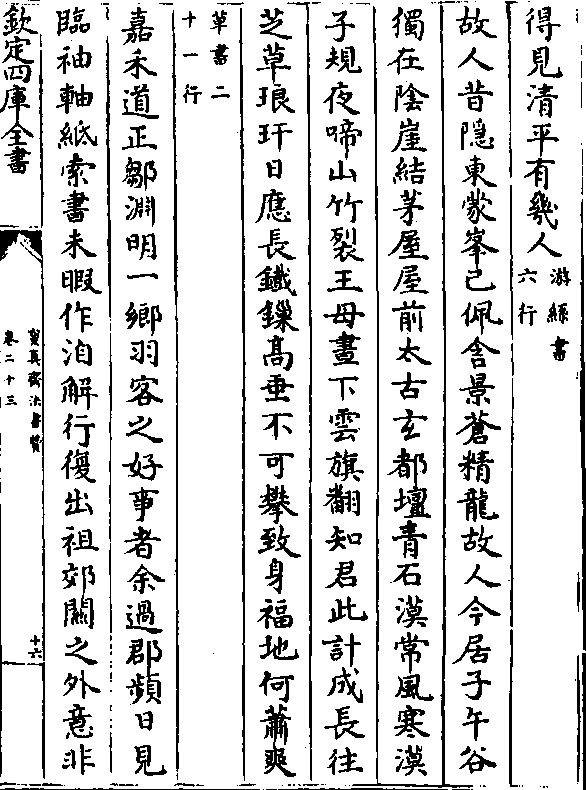 得見清平有幾人游絲書六行
故人昔隱東蒙峯已佩含景蒼精龍故人今居子午谷
獨在陰崖結茅屋屋前太古玄都壇青石漠常風寒漠
子規夜啼山竹裂王母晝下雲旗翻知君此計成長往
芝草琅玕日應長鐵鏁髙垂不可攀致身福地何蕭爽
草書二十一行
嘉禾道正鄒淵明一鄉羽客之好事者余過郡頻日見
臨袖軸紙索書未暇作洎解行復出祖郊關之外意非
欽定四庫全書
寶真齋法書贊
卷二十三
十六